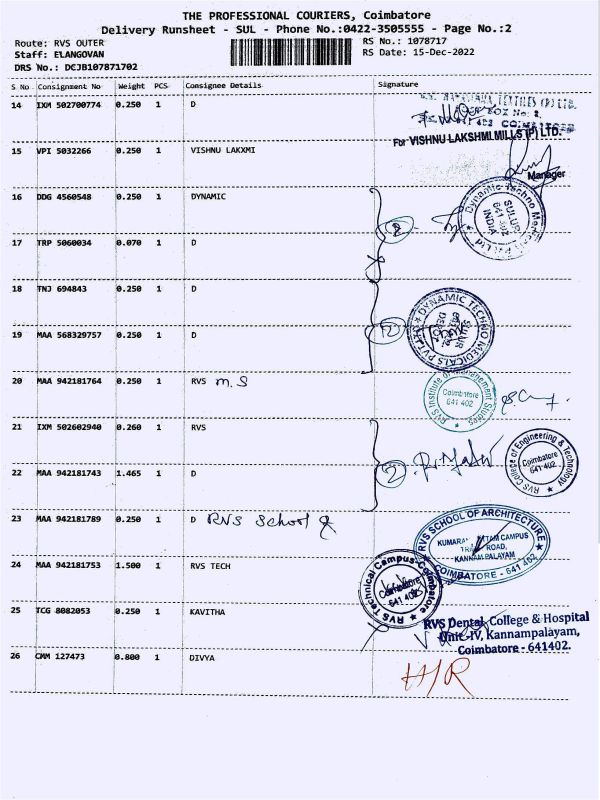 THE PROFESSIONAL COURIERS, Coimbatore
Delivery Runsheet - SUL - Phone No.:0422-3505555 - Page No.:2
Route: RVS OUTER
RS No.: 1078717
Staff: ELANGOVAN
RS Date: 15-Dec-2022
DRS No.: DCJB107871702
S No Consignment No Weight PCS Consignee Details Signature
14 IXM 502700774 0.250 1 D
TEXTILES (P) LTD.
BOX No: 2,
641 402 COIMBATORE
For VISHNU LAKSHMI MILLS (P) LTD.
15 VPI 5032266 0.250 1 VISHNU LAKXMI
Manager
16 DDG 4560548 0.250 1 DYNAMIC
Dynamic Techno Medicals
SULUR
641 402
INDIA
17 TRP 5060034 0.070 1 D
18 TNJ 694843 0.250 1 D
DYNAMIC TECHNO MEDICALS PVT
19 MAA 568329757 0.250 1 D
20 MAA 942181764 0.250 1 RVS M.S
RVS Institute of Management Studies
Coimbatore
641 402
21 IXM 502602940 0.260 1 RVS
RVS College of Engineering & Technology
Coimbatore
641 402
22 MAA 942181743 1.465 1 D
2
23 MAA 942181789 0.250 1 D RVS School
RVS SCHOOL OF ARCHITECTURE
KUMARAN CAMPUS
ROAD,
KANNAMPALAYAM
COIMBATORE - 641 402
24 MAA 942181753 1.500 1 RVS TECH
RVS Technical Campus-Coimbatore
Coimbatore
641 402
25 TCG 8082053 0.250 1 KAVITHA
RVS Dental College & Hospital
Unit-IV, Kannampalayam,
Coimbatore - 641402.
26 CMM 127473 0.800 1 DIVYA
H/R